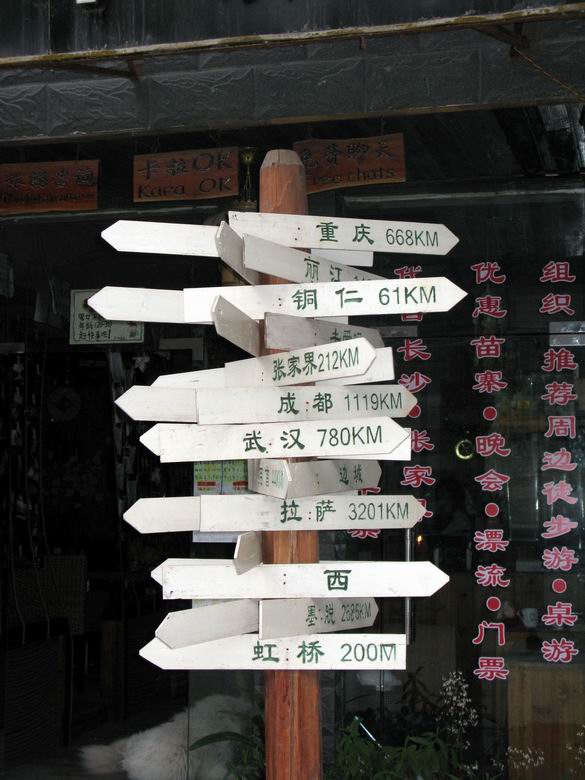 卡拉OK
Kara OK
免费聊天
Free chats
重庆 668KM
丽江
铜仁 61KM
张家界 212KM
成都 1119KM
武汉 780KM
边城
拉萨 3201KM
西
墨脱 2686KM
虹桥 200M
长沙•张家界
优惠苗寨•晚会•漂流•门票
组织 推荐周边徒步游•桌游